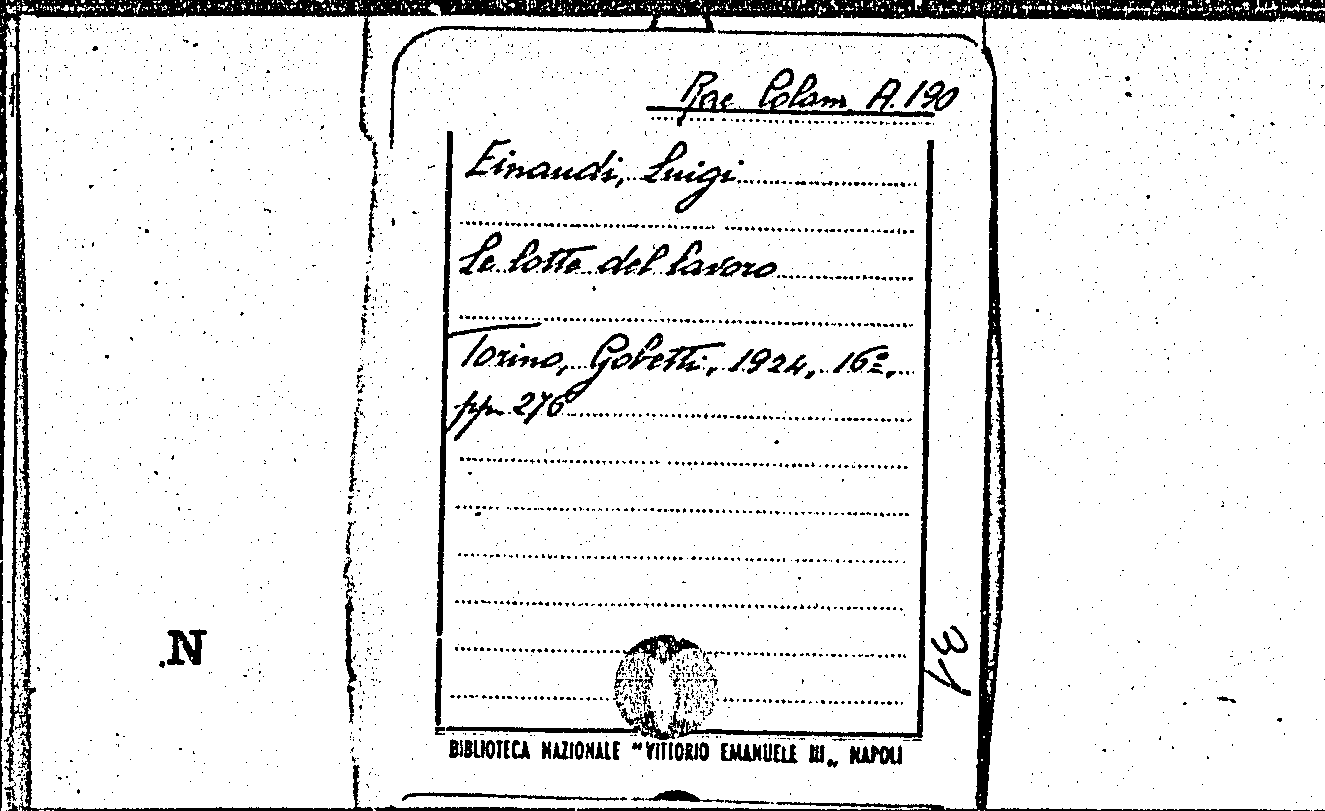 Rac. Colam. A.190
Einaudi, Luigi
Le lotte del lavoro
Torino, Gobetti, 1924, 16º,
pp. 276
N
34
BIBLIOTECA NAZIONALE "VITTORIO EMANUELE III„ NAPOLI